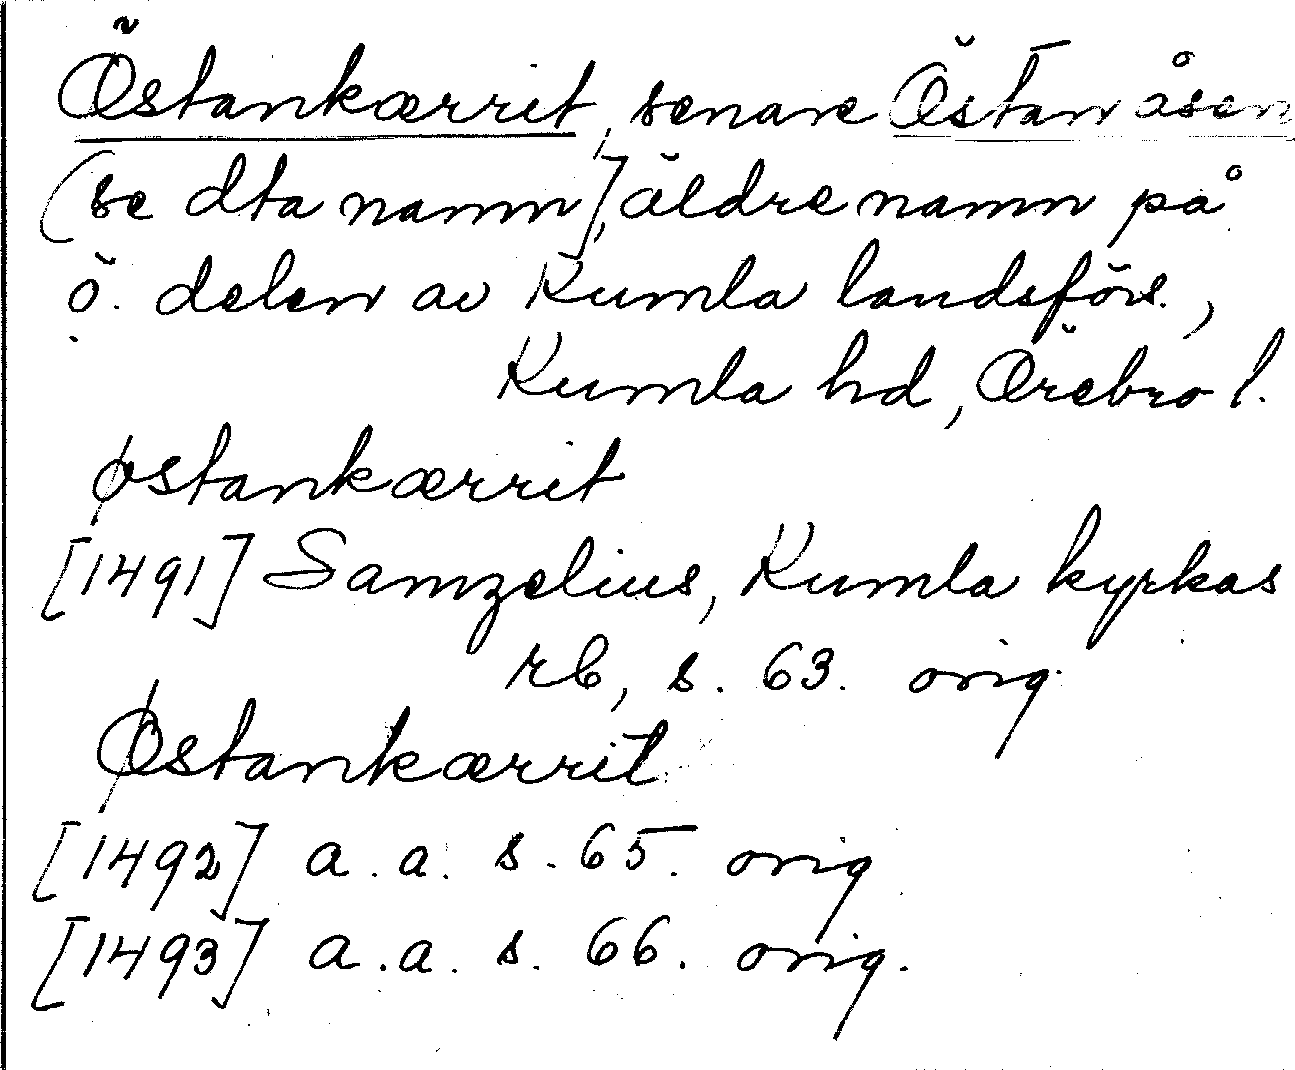 Östankærrit, senare Östanåsen
(se dta namn], äldre namn på
ö. delen av Kumla landsförs.,
Kumla hd, Örebro l.
østankærrit
[1491] Samzelius, Kumla kyrkas
rb, s. 63. orig.
Østankærrit
[1492] a. a. s. 65. orig
[1493] a. a. s. 66. orig.